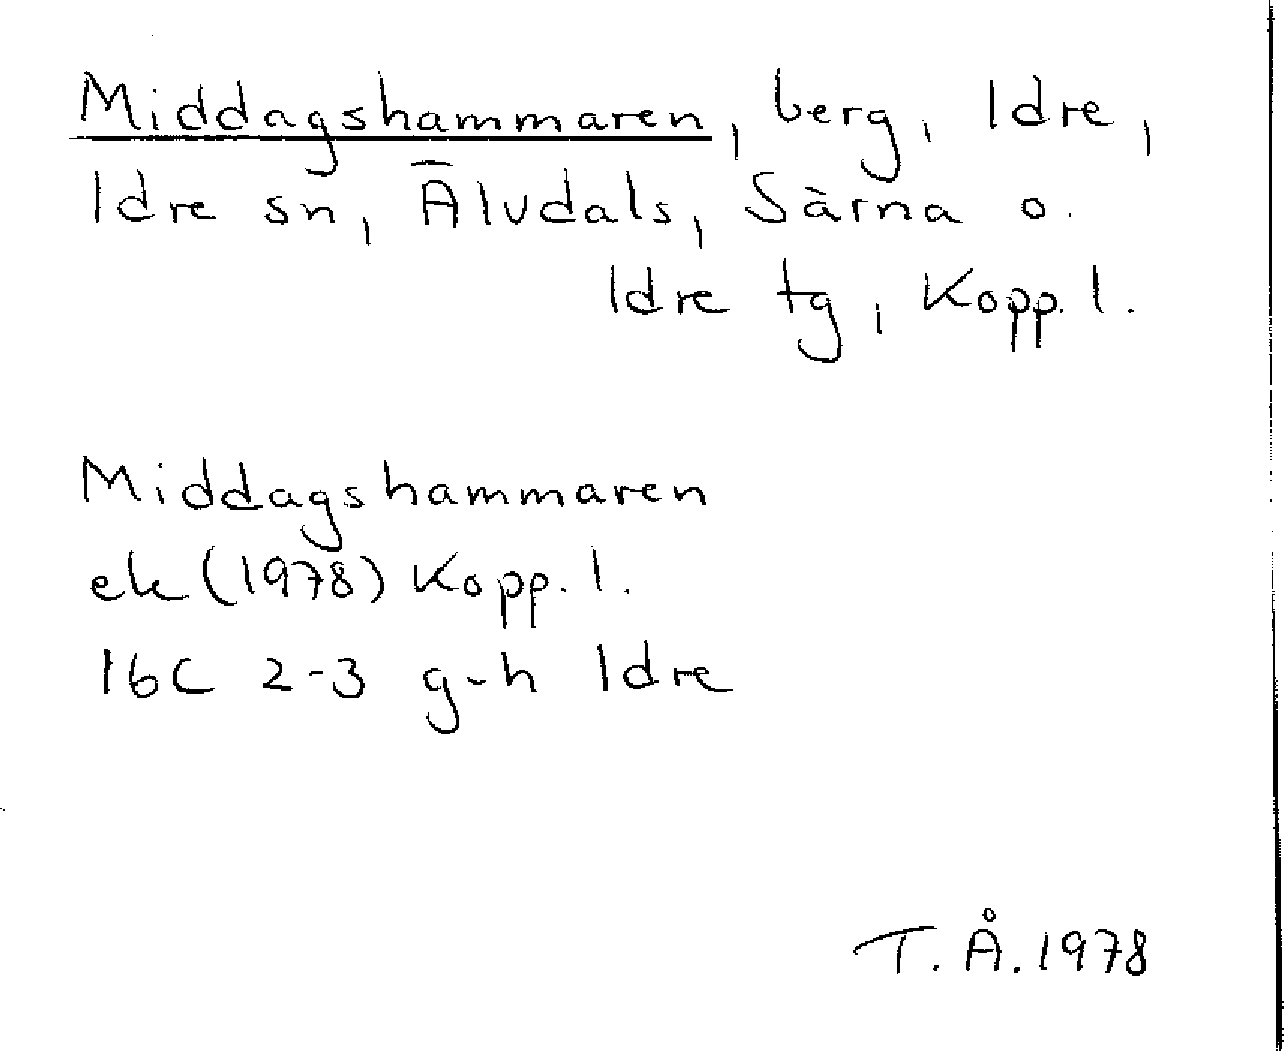 Middagshammaren, berg, Idre,
Idre sn, Älvdals, Särna o.
Idre tg, Kopp. l.
Middagshammaren
ek (1978) Kopp. l.
16C 2-3 g-h Idre
T. Å. 1978